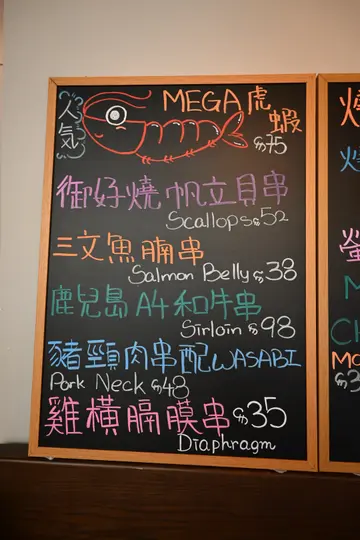 人氣
MEGA虎
蝦
$75
御好燒帆立貝串
Scallops $52
三文魚腩串
Salmon Belly $38
鹿兒島A4和牛串
Sirloin $98
豬頸肉串配WASABI
Pork Neck $48
雞橫膈膜串 $35
Diaphragm